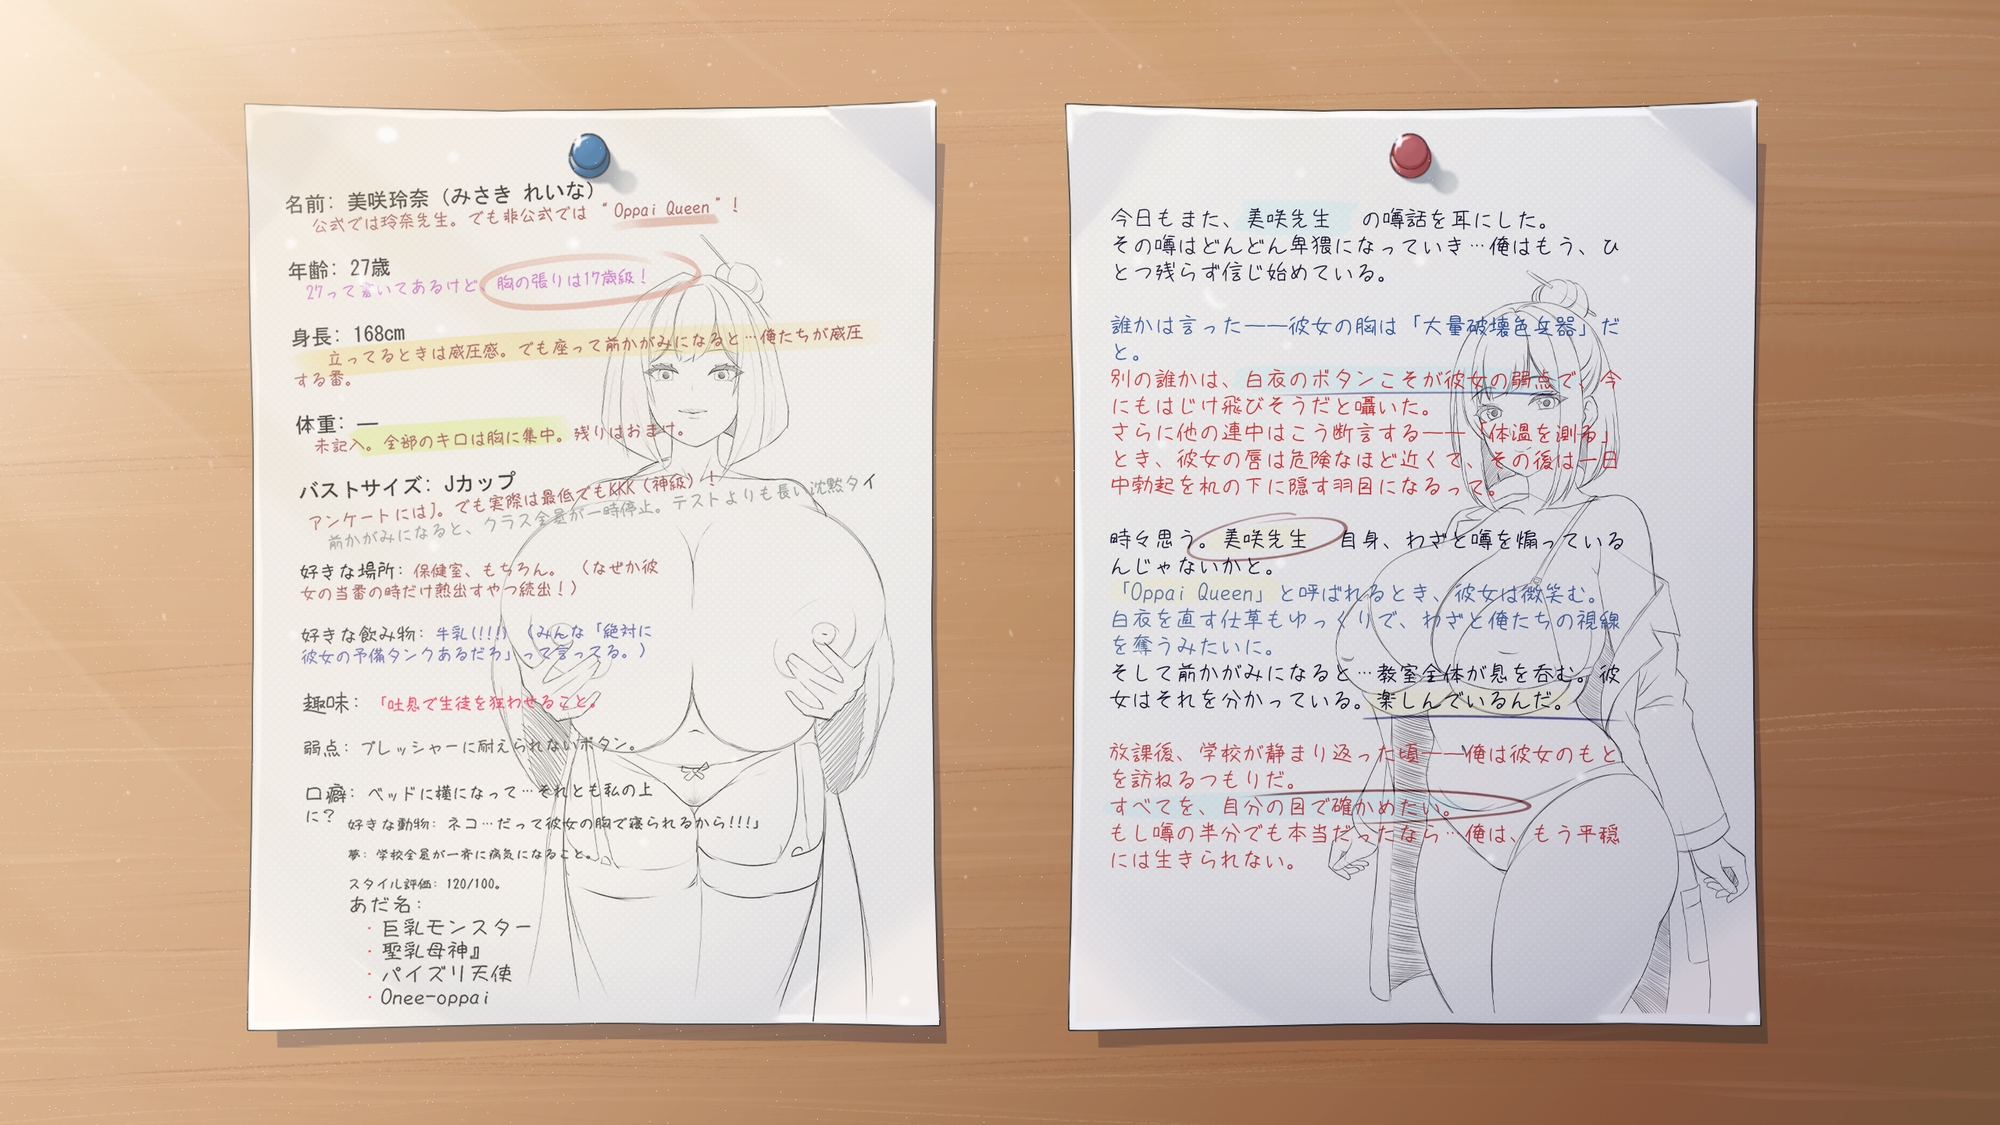 名前: 美咲玲奈 (みさき れいな)
公式では玲奈先生。でも非公式では “Oppai Queen”!
年齢: 27歳
27って書いてあるけど、胸の張りは17歳級!
身長: 168cm
立ってるときは威圧感。でも座って前かがみになると…俺たちが威圧
する番。
体重: —
未記入。全部のキロは胸に集中。残りはおまけ。
バストサイズ: Jカップ
アンケートにはJ。でも実際は最低でもKKK(神級)!
前かがみになると、クラス全員が一時停止。テストよりも長い沈黙タイ
好きな場所: 保健室、もちろん。 (なぜか彼
女の当番の時だけ熱出すやつ続出!)
好きな飲み物: 牛乳(!!!) (みんな「絶対に
彼女の予備タンクあるだろ」って言ってる。)
趣味: 「吐息で生徒を狂わせること。
弱点: プレッシャーに耐えられないボタン。
口癖: ベッドに横になって…それとも私の上
に?
好きな動物: ネコ…だって彼女の胸で寝られるから!!!」
夢: 学校全員が一斉に病気になること。
スタイル評価: 120/100。
あだ名:
・巨乳モンスター
・聖乳母神』
・パイズリ天使
・Onee-oppai
今日もまた、美咲先生 の噂話を耳にした。
その噂はどんどん卑猥になっていき…俺はもう、ひ
とつ残らず信じ始めている。
誰かは言った——彼女の胸は「大量破壊色兵器」だ
と。
別の誰かは、白衣のボタンこそが彼女の弱点で、今
にもはじけ飛びそうだと囁いた。
さらに他の連中はこう断言する——「体温を測る」
とき、彼女の唇は危険なほど近くて、その後は一日
中勃起を机の下に隠す羽目になるって。
時々思う。美咲先生 自身、わざと噂を煽っている
んじゃないかと。
「Oppai Queen」と呼ばれるとき、彼女は微笑む。
白衣を直す仕草もゆっくりで、わざと俺たちの視線
を奪うみたいに。
そして前かがみになると…教室全体が息を呑む。彼
女はそれを分かっている。楽しんでいるんだ。
放課後、学校が静まり返った頃——俺は彼女のもと
を訪ねるつもりだ。
すべてを、自分の目で確かめたい。
もし噂の半分でも本当だったなら…俺は、もう平穏
には生きられない。